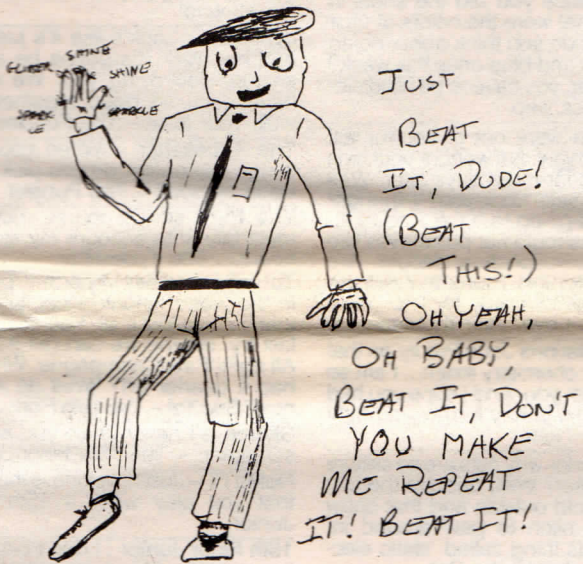 SHINE
GLITTER SHINE
SPARK SPARKLE
LE
JUST
BEAT
IT, DUDE!
(BEAT
THIS!)
OH YEAH,
OH BABY
BEAT IT, DON'T
YOU MAKE
ME REPEAT
IT! BEAT IT!